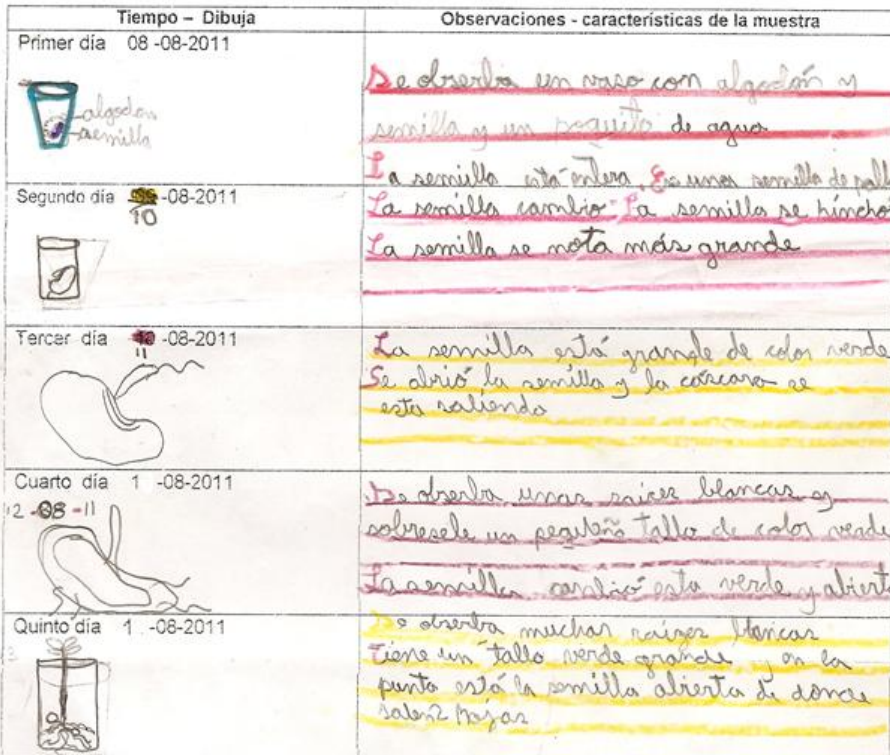 Tiempo – Dibuja
Observaciones - características de la muestra
Primer día 08 -08-2011
algodon
semilla
Se obserba un vaso con algodón y
semilla y un poquito de agua
La semilla está entera. Es una semilla de pall
Segundo día -08-2011
10
La semilla cambio. La semilla se hincho
La semilla se nota más grande
Tercer día -08-2011
11
La semilla está grande de color verde
Se abrió la semilla y la cáscara se
esta saliendo
Cuarto día 1 -08-2011
2 -08 -11
Se obserba unas raices blancas y
sobresele un pequeño tallo de color verde
La semilla cambió esta verde y abiert
Quinto día 1 -08-2011
3
Se obserba muchas raízes blancas
Tiene un tallo verde grande y en la
punta está la semilla abierta de donde
salen 2 hojas